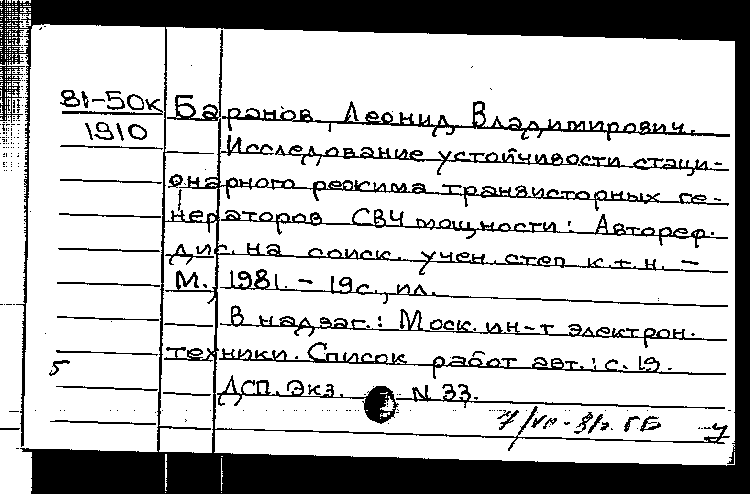 81-50к
1910
Баранов, Леонид Владимирович.
Исследование устойчивости стаци-
онарного режима транзисторных ге-
нераторов СВЧ мощности: Автореф.
дис. на соиск. учен. степ к.т.н. –
М., 1981. – 19с., ил.
В надзаг.: Моск. ин-т электрон.
техники. Список работ авт.: с. 19.
5
ДСП. Экз. N 33.
ГБ